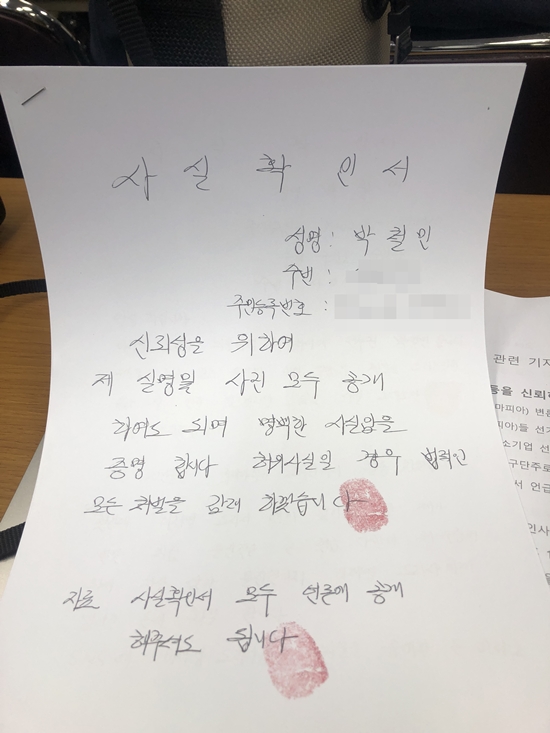 사실확인서
성명 : 박철민
주번 :
주민등록번호 :
신뢰성을 위하여
제 실명및 사진 모두 공개
하여도 되며 명백한 사실임을
증명 합니다 허위사실일 경우 법적인
모든 처벌을 감려 하겠습니다
자료 사실확인서 모두 언론에 공개
해주셔도 됩니다
관련 기자
등을 신뢰
마피아) 변
피아)들 선거
소기업 선
구단주로
서 언급
인사